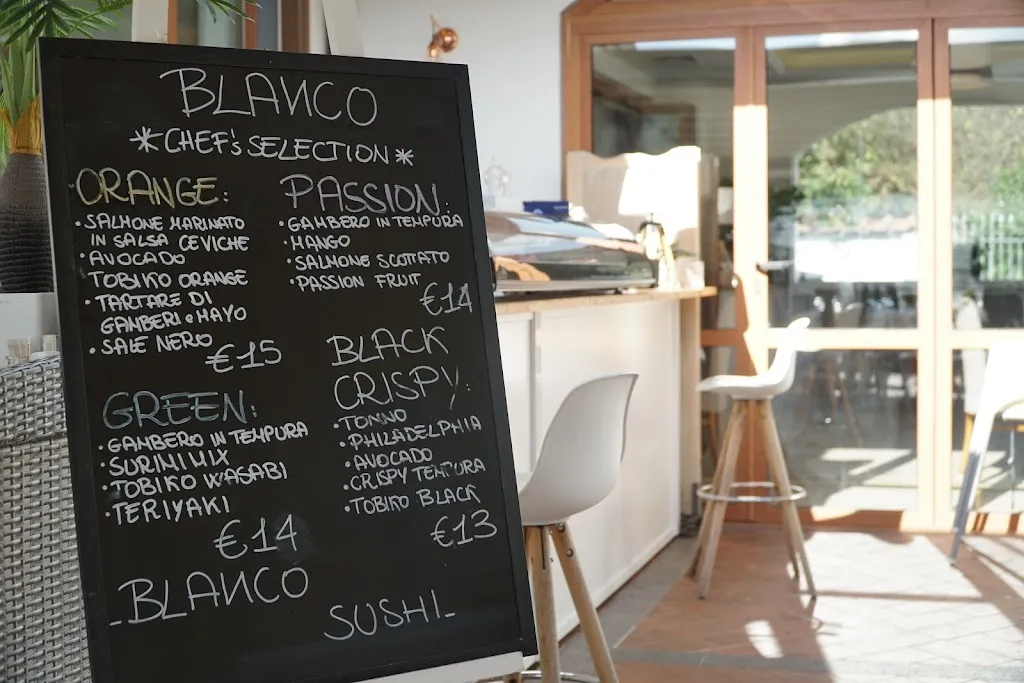 BLANCO
*CHEF'S SELECTION*
ORANGE:
• SALMONE MARINATO
IN SALSA CEVICHE
• AVOCADO
TOBIKO ORANGE
• TARTARE DI
GAMBERI e MAYO
• SALE NERO
€15
PASSION:
• GAMBERO IN TEMPURA
• MANGO
• SALMONE SCOTTATO
• PASSION FRUIT
€14
GREEN:
• GAMBERO IN TEMPURA
• SURIMI MIX
• TOBIKO WASABI
• TERIYAKI
€14
BLACK
CRISPY:
• TONNO
• PHILADELPHIA
• AVOCADO
• CRISPY TEMPURA
• TOBIKO BLACK
€13
- BLANCO
SUSHI -